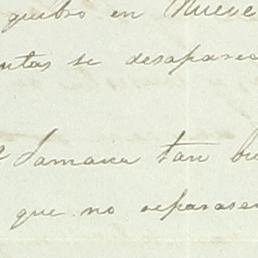 quebro en Nueve
ntas se desaparec
Samana tan bu
que no reparasen